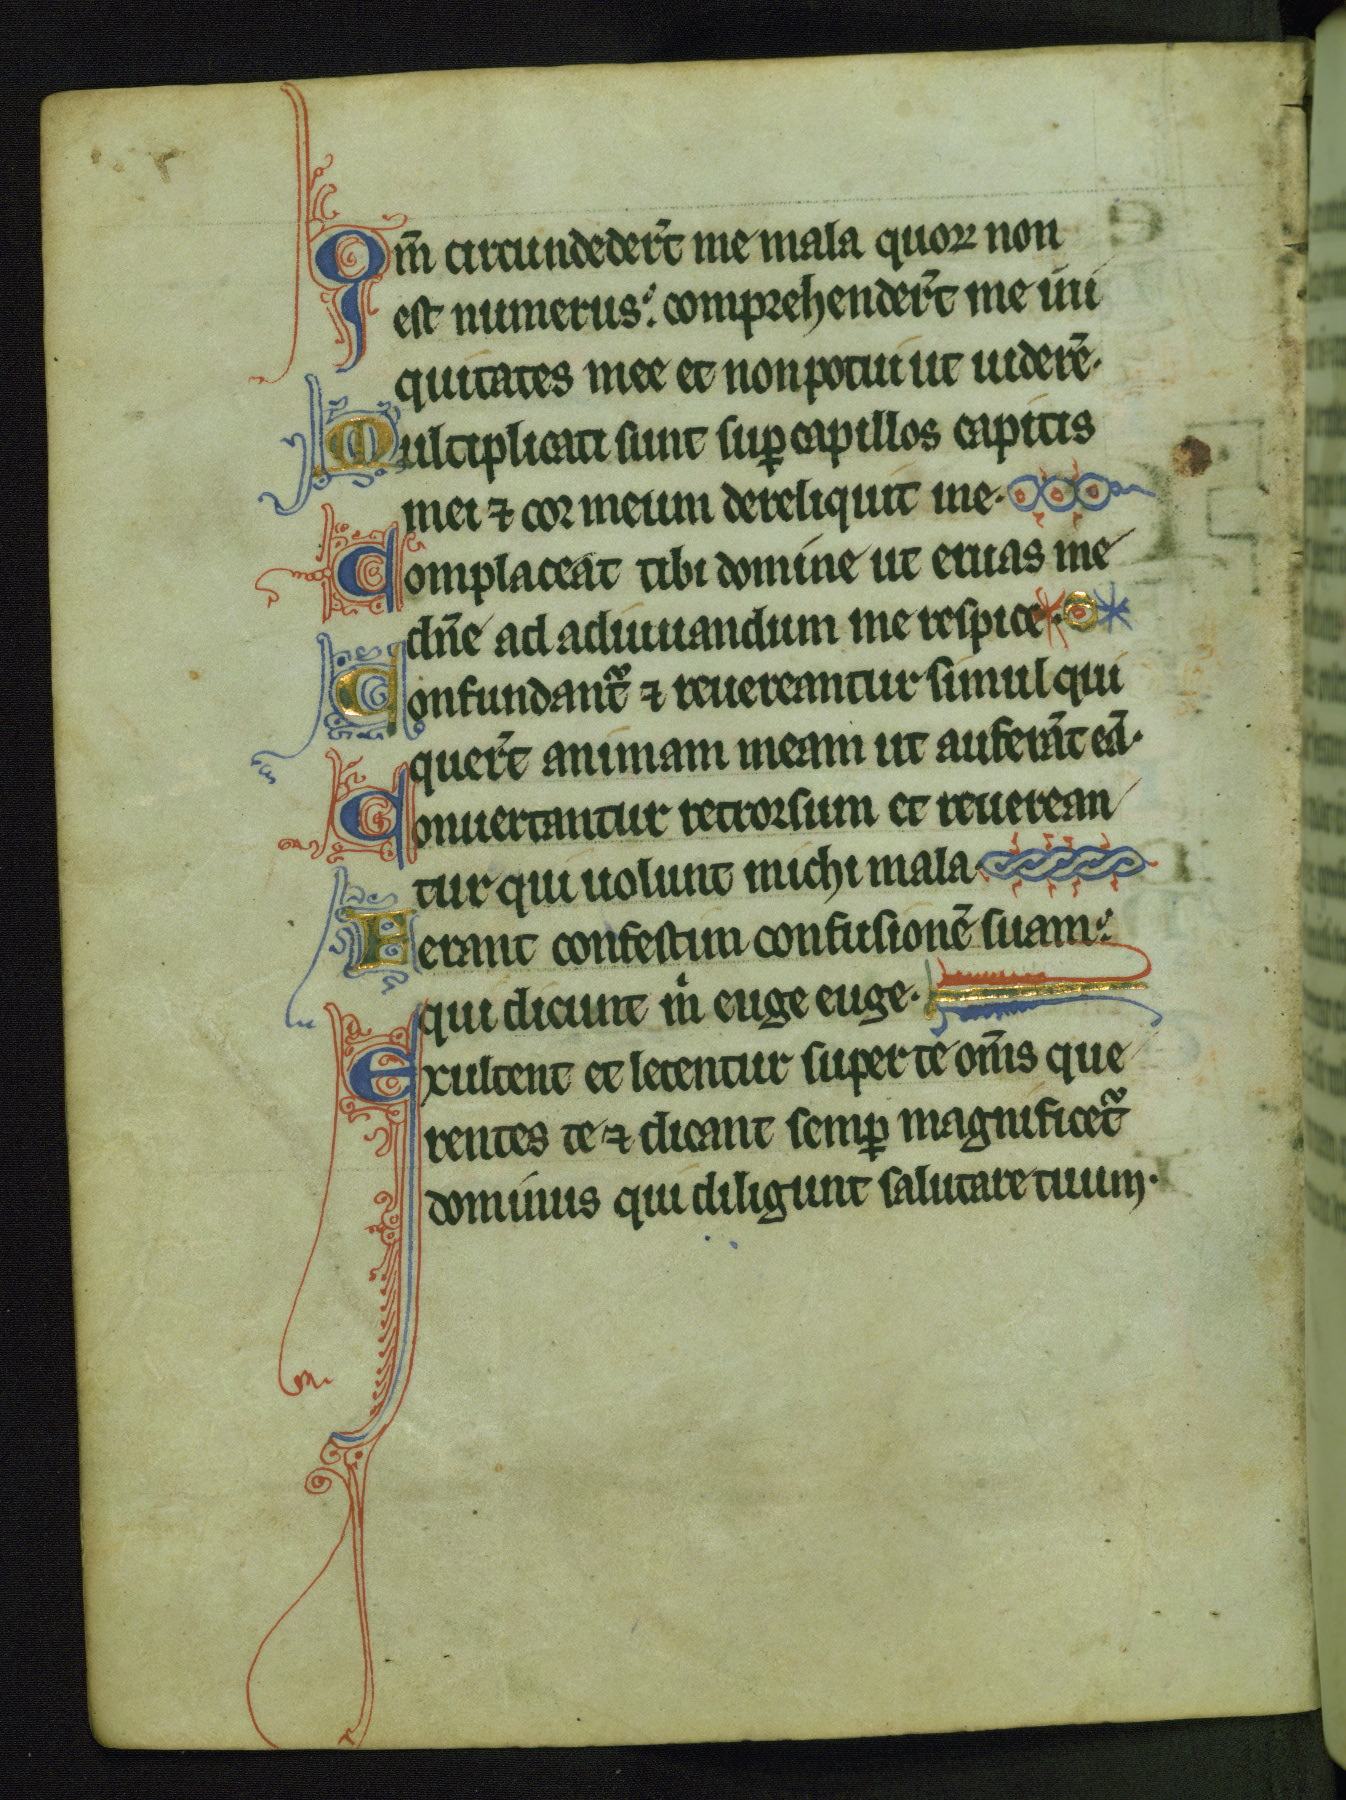 Qm̄ circundeder̄t me mala quoꝝ non
est numerus: comprehender̄t me ini
quitates mee et non potui ut uiderē.
Multiplicati sunt suꝑ capillos capitis
mei ⁊ cor meum dereliquit me.
Complaceat tibi domine ut eruas me
dn̄e ad adiuuandum me respice.
Confundant᷑ ⁊ reuereantur simul qui
quer̄t animam meam ut auferāt eā.
Conuertantur retrorsum et reuerean
tur qui uolunt michi mala.
Ferant confestim confusionē suam:
qui dicunt m̊ euge euge.
Exultent et letentur super te om̄s que
rentes te ⁊ dicant semꝑ magnificet᷑
dominus qui diligunt salutare tuum.